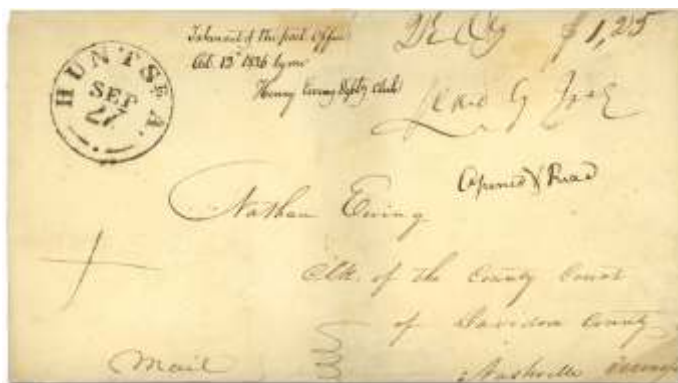 HUNTSE A.
SEP
27
of the post office
Oct. 13th 1836 by me
Henry Ewing Clerk
$1,25
Opened & Read
Nathan Ewing
Clk. of the County Court
of Davidson County
Nashville
Mail